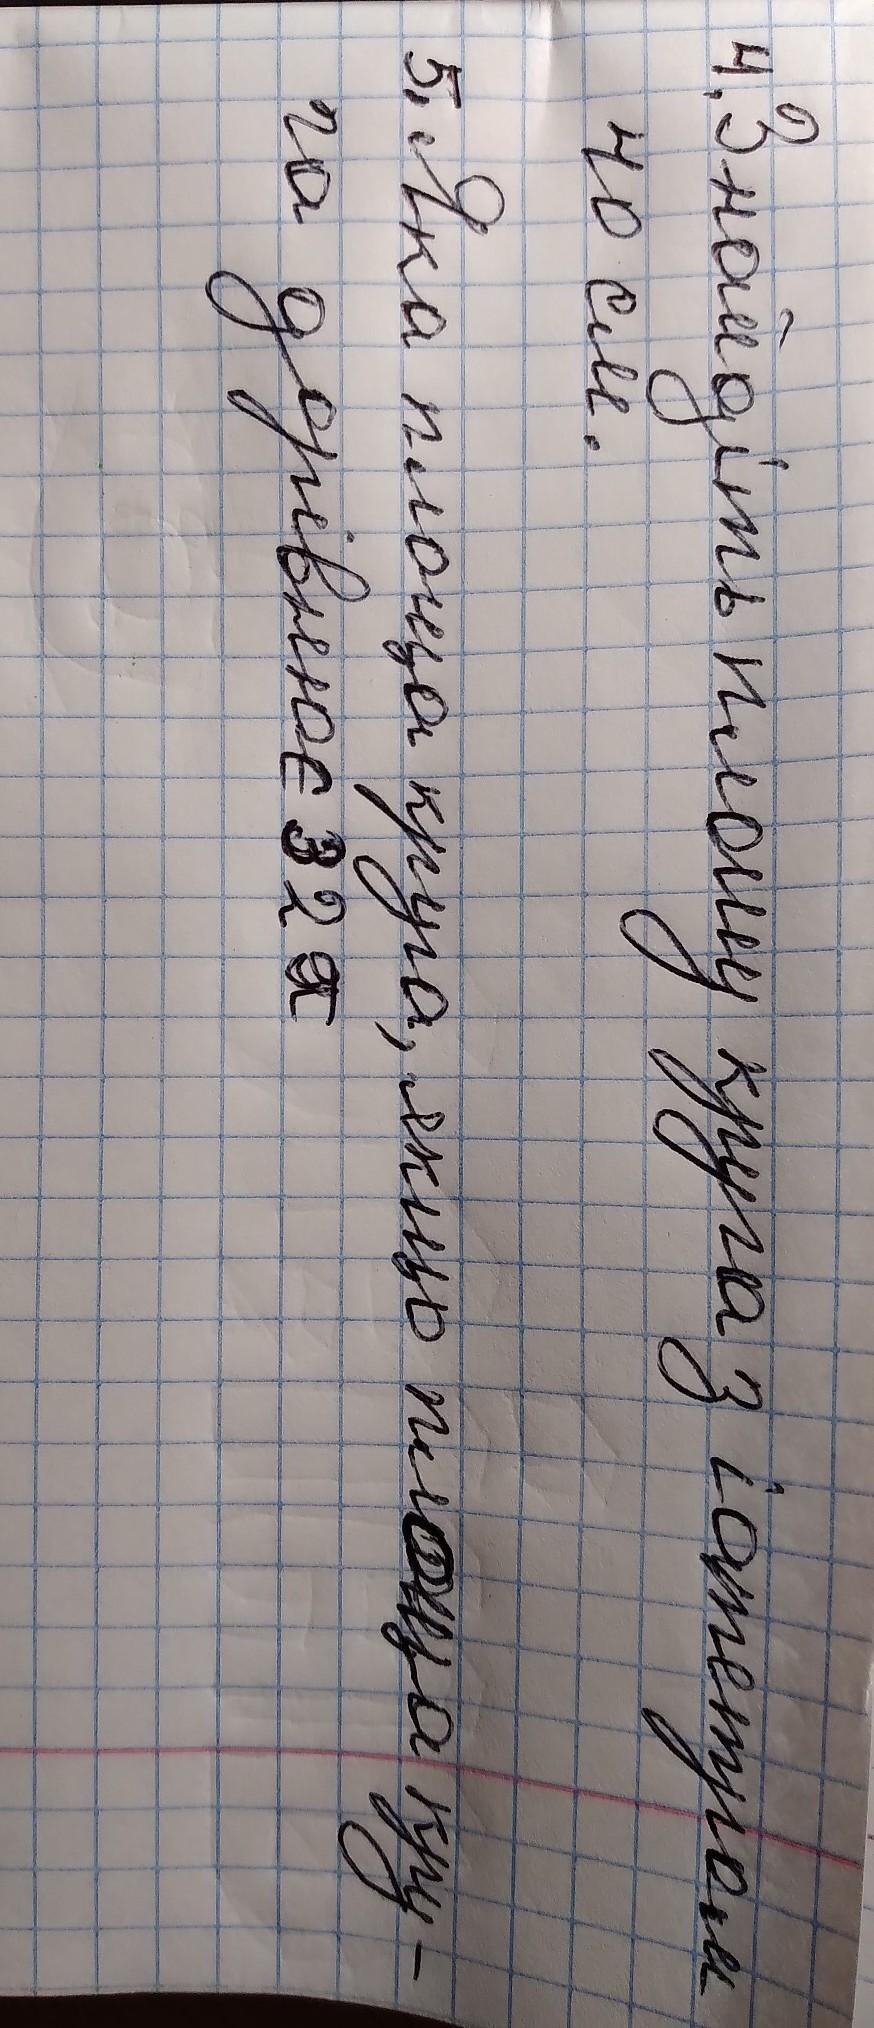 4. Знайдіть площу круга з іаметром
40 см.
5. Яка площа круга, якщо площа кру-
га дорівнює 32π